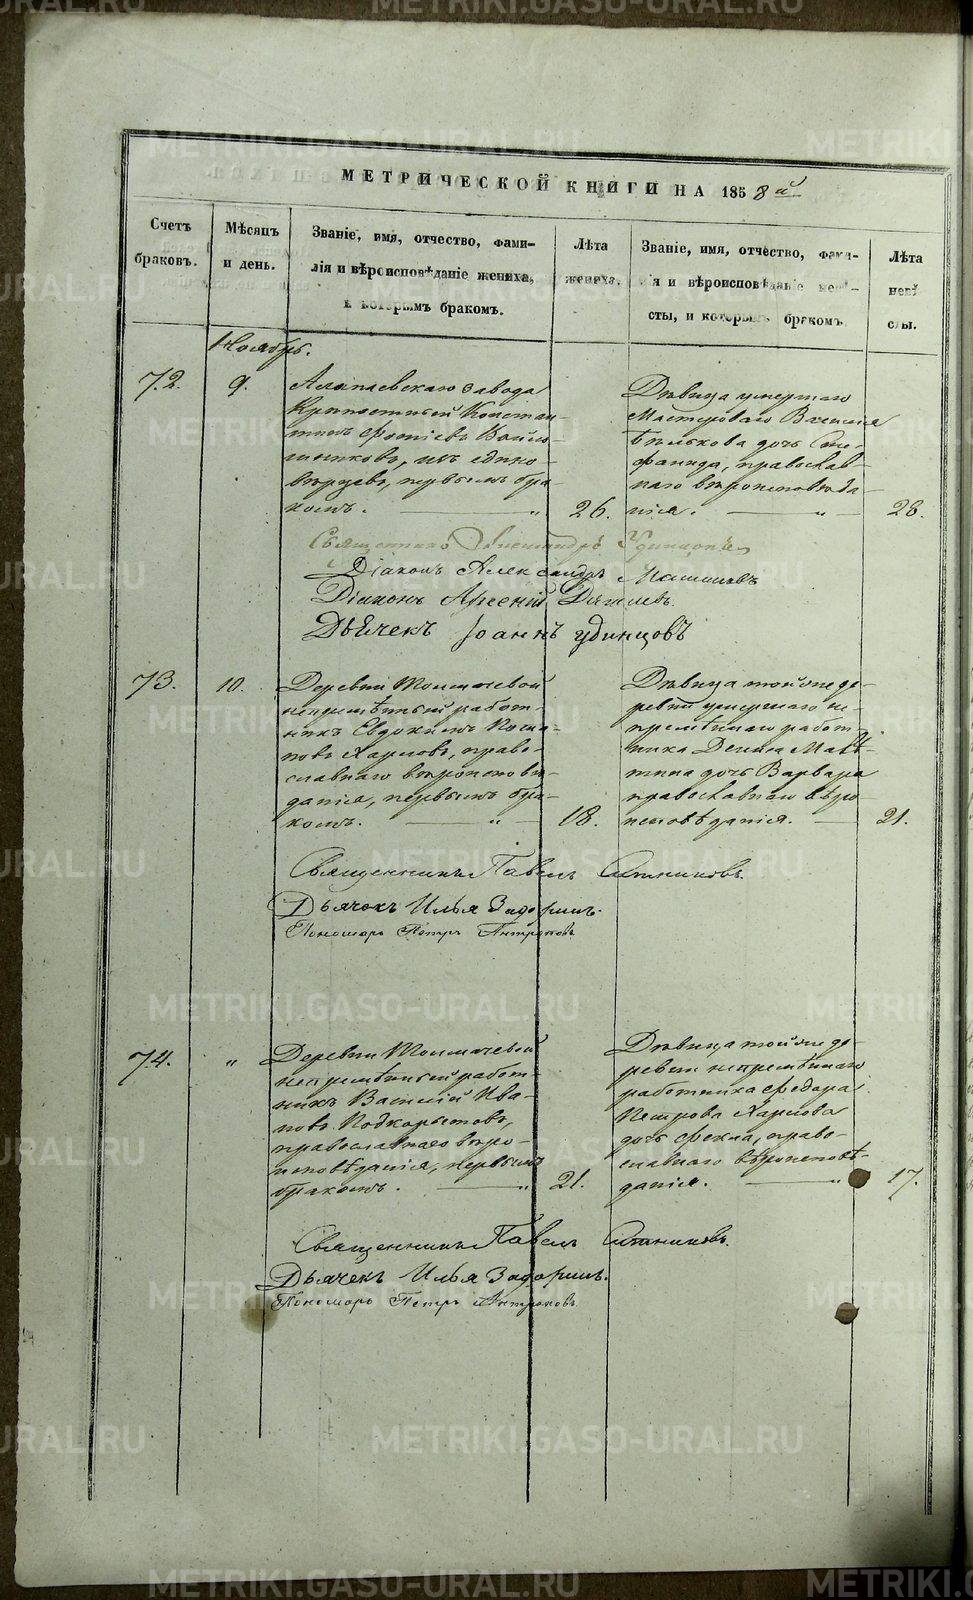 МЕТРИЧЕСКОЙ КНИГИ НА 1858й
Счетъ браковъ.
Мѣсяцъ и день.
Званіе, имя, отчество, фами-
лія и вѣроисповѣданіе жениха,
и которымъ бракомъ.
Лѣта
жениха.
Званіе, имя, отчество, фами-
лія и вѣроисповѣданіе невѣ-
сты, и которымъ бракомъ
Лѣта
невѣ
сты.
Ноябрь.
72.
9.
Алапаевскаго завода
Крѣпостный Констан-
тинъ Фотіевъ
изъ едино-
вѣрцевъ, первымъ бра-
комъ. — „
26.
Дѣвица умершаго
Мастероваго
Бѣлькова дочь Сте-
фанида, православ-
наго вѣроисповѣда-
нія. — „ —
28.
Священникъ Александръ Удинцовъ
Діаконъ Александръ
Діаконъ Арсеній Дягилевъ.
Дьячекъ Іоаннъ Удинцовъ
73.
10.
Деревни Толмачевой
непремѣнный работ-
никъ Евдокимъ
Харловъ, право-
славнаго вѣроисповѣ-
данія, первымъ бра-
комъ. — „ —
18.
Дѣвица той же де-
ревни умершаго не-
премѣннаго работ-
ника
дочь Варвара
православнаго вѣро-
исповѣданія. —
21.
Священникъ Павелъ Ситниковъ.
Дьячокъ Илья Задоринъ.
Пономарь Петръ Антроповъ
74.
„
Деревни Толмачевой
непремѣнный работ-
никъ Василій Ива-
новъ Подкорытовъ,
православнаго вѣро-
исповѣданія, первымъ
бракомъ. — „
21.
Дѣвица той же де-
ревни непремѣннаго
работника Федора
Петрова Харлова
дочь Фекла, право-
славнаго вѣроисповѣ-
данія. — „
17.
Священникъ Павелъ Ситниковъ.
Дьячекъ Илья Задоринъ.
Пономарь Петръ Антроповъ
METRIKI.GASO-URAL.RU